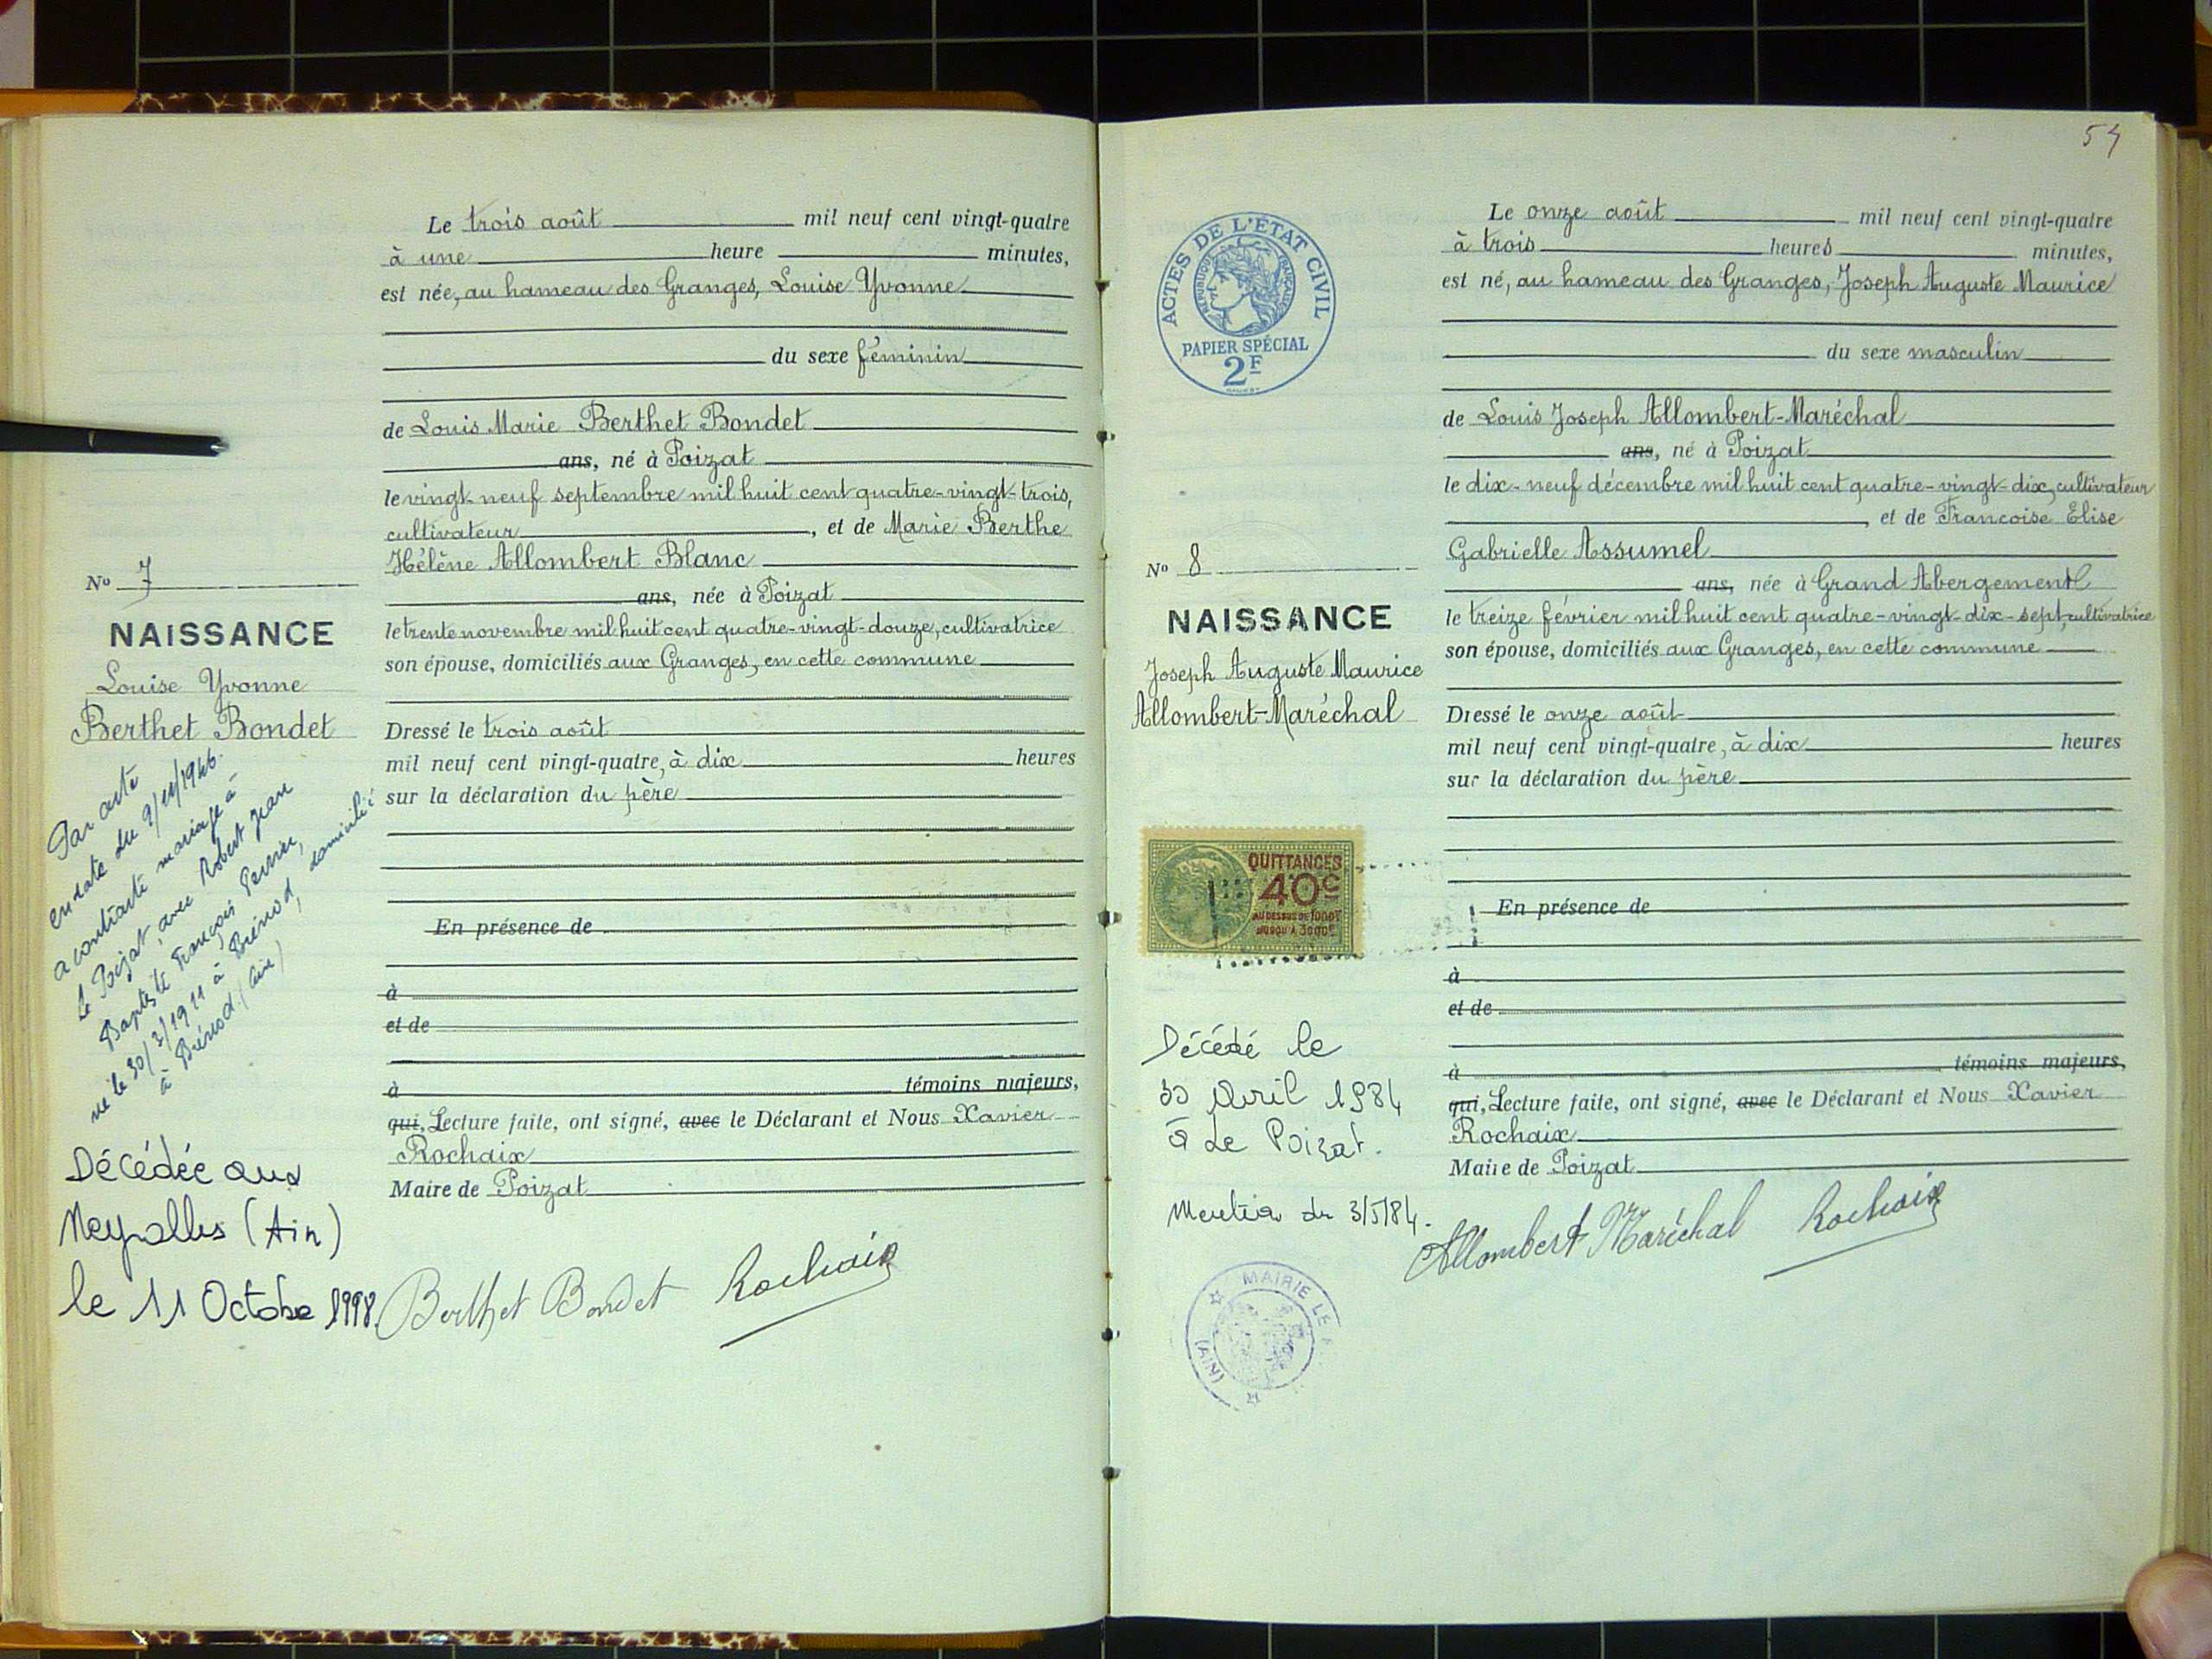 Le trois août mil neuf cent vingt-quatre
à une heure minutes,
est née, au hameau des Granges, Louise Yvonne
du sexe féminin
de Louis Marie Berthet Bondet
ans, né à Poizat
le vingt-neuf septembre mil huit cent quatre-vingt-trois,
cultivateur, et de Marie Berthe
Hélène Allombert Blanc
ans, née à Poizat
le trente novembre mil huit cent quatre-vingt-douze, cultivatrice
son épouse, domiciliés aux Granges, en cette commune
Dressé le trois août
mil neuf cent vingt-quatre, à dix heures
sur la déclaration du père
En présence de
à
et de
à témoins majeurs,
qui, Lecture faite, ont signé, avec le Déclarant et Nous Xavier
Rochaix
Maire de Poizat
Berthet Bondet Rochaix
No 7
NAISSANCE
Louise Yvonne
Berthet Bondet
Par acte
en date du 9/11/1946.
a contracté mariage à
Le Poizat, avec Robert Jean
Baptiste François Perrier,
né le 30/3/1911 à Brénod, domicilié
à Brénod (Ain)
Décédée aux
Neyrolles (Ain)
le 11 Octobre 1998.
54
ACTES DE L'ÉTAT CIVIL
RÉPUBLIQUE FRANÇAISE
PAPIER SPÉCIAL
2F
No 8
NAISSANCE
Joseph Auguste Maurice
Allombert-Maréchal
QUITTANCES
40c
AU DESSUS DE 1000F
JUSQU'A 3000F
Décédé le
30 Avril 1984
à Le Poizat.
Mention du 3/5/84.
MAIRIE LE
(AIN)
Le onze août mil neuf cent vingt-quatre
à trois heures minutes,
est né, au hameau des Granges, Joseph Auguste Maurice
du sexe masculin
de Louis Joseph Allombert-Maréchal
ans, né à Poizat
le dix-neuf décembre mil huit cent quatre-vingt-dix, cultivateur
, et de Francoise Elise
Gabrielle Assumel
ans, née à Grand Abergement
le treize février mil huit cent quatre-vingt-dix-sept, cultivatrice
son épouse, domiciliés aux Granges, en cette commune
Dressé le onze août
mil neuf cent vingt-quatre, à dix heures
sur la déclaration du père
En présence de
à
et de
à témoins majeurs,
qui, Lecture faite, ont signé, avec le Déclarant et Nous Xavier
Rochaix
Maire de Poizat
Allombert Maréchal Rochaix